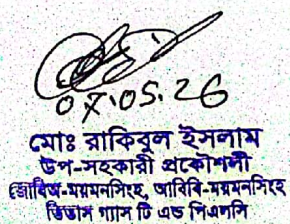 ০৭.০5.26
মোঃ রাকিবুল ইসলাম
উপ-সহকারী প্রকৌশলী
জোবিঅ-ময়মনসিংহ, আবিবি-ময়মনসিংহ
তিতাস গ্যাস টি এন্ড ডি পিএলসি